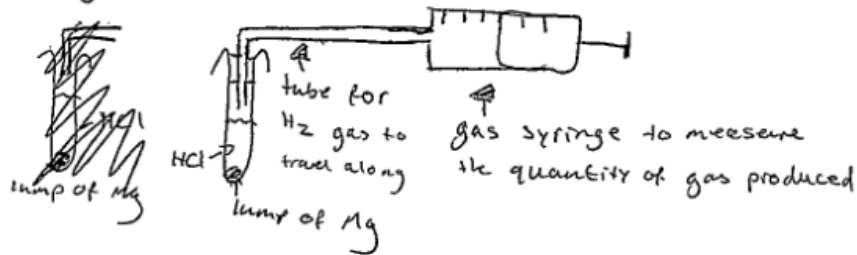 HCl
lump of Mg
HCl
lump of Mg
tube for
H2 gas to
travel along
gas syringe to measure
the quantity of gas produced